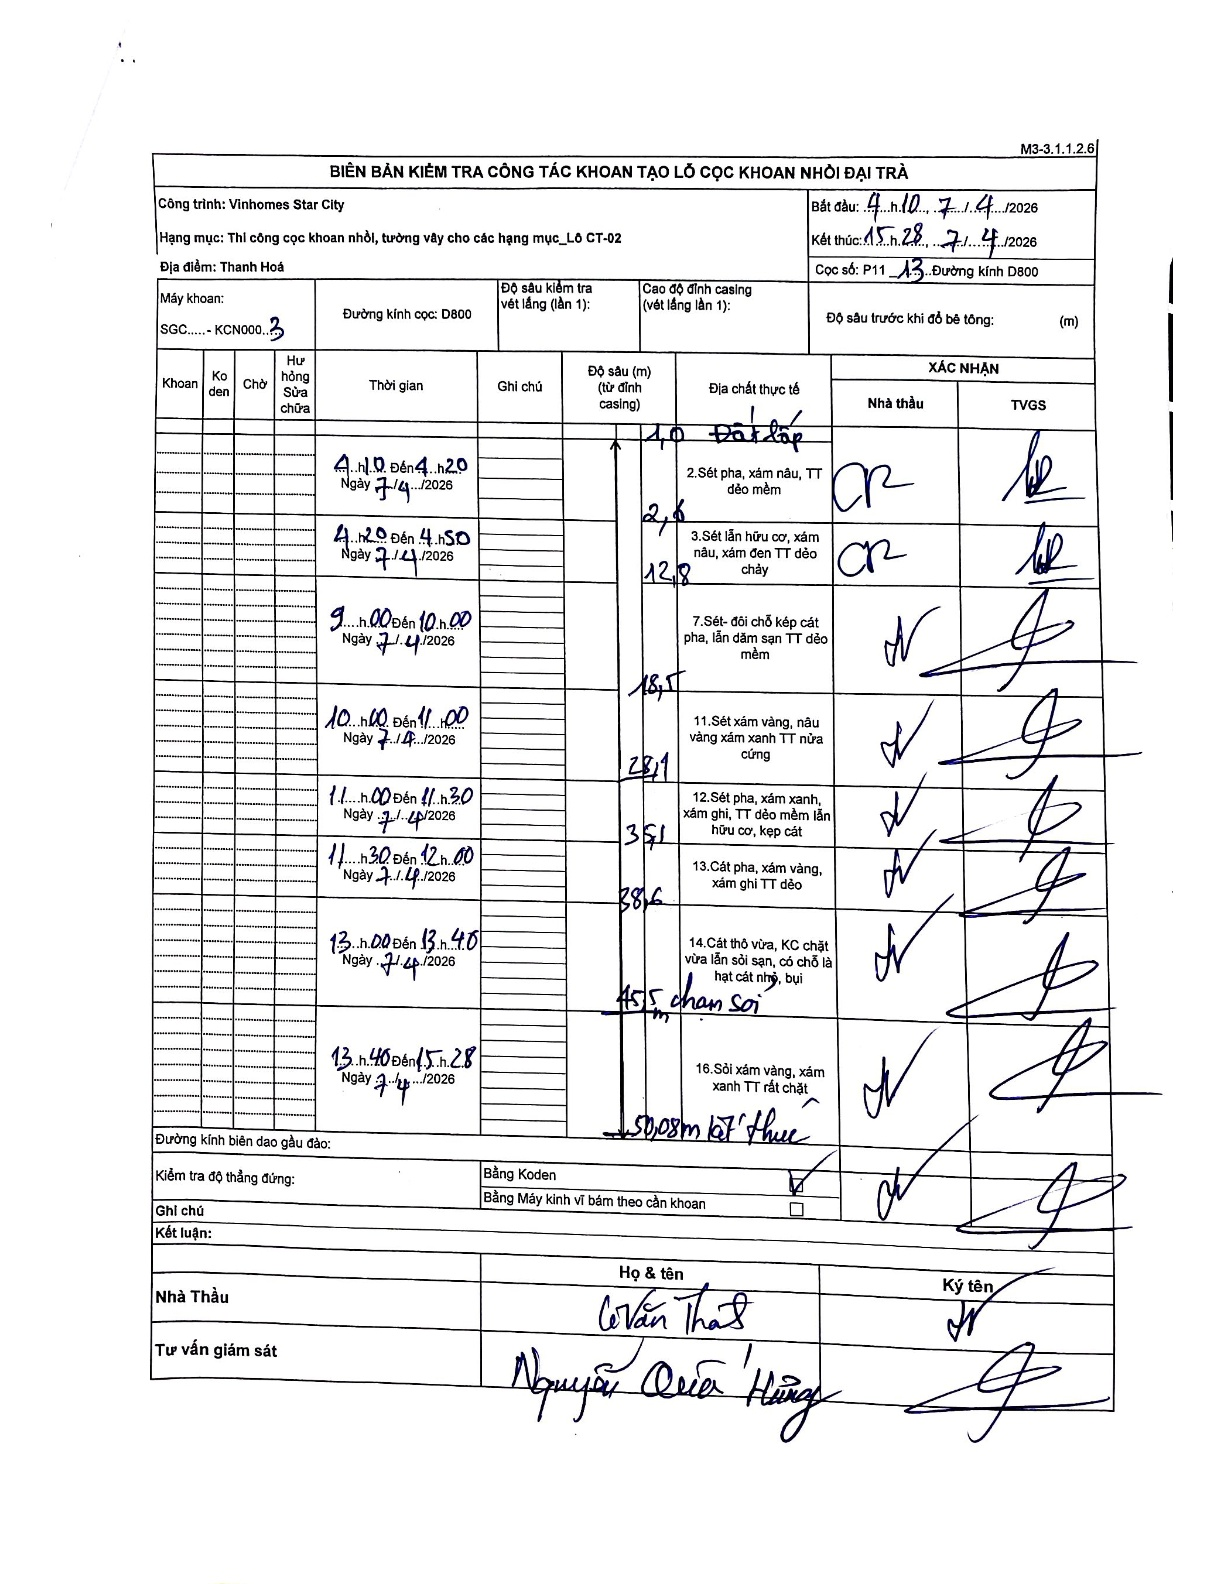 M3-3.1.1.2.6
BIÊN BẢN KIỂM TRA CÔNG TÁC KHOAN TẠO LỖ CỌC KHOAN NHỒI ĐẠI TRÀ
Công trình: Vinhomes Star City
Bắt đầu: 4 h 10, 7/4/2026
Hạng mục: Thi công cọc khoan nhồi, tường vây cho các hạng mục_Lô CT-02
Kết thúc: 15 h 28, 7/4/2026
Địa điểm: Thanh Hoá
Cọc số: P11_13 Đường kính D800
Máy khoan:
SGC.....- KCN000..3
Đường kính cọc: D800
Độ sâu kiểm tra vét lắng (lần 1):
Cao độ đỉnh casing (vét lắng lần 1):
Độ sâu trước khi đổ bê tông: (m)
Khoan Ko đen Chờ Hư hỏng Sửa chữa Thời gian Ghi chú Độ sâu (m) (từ đỉnh casing) Địa chất thực tế XÁC NHẬN
Nhà thầu TVGS
1,0 Đất lấp
4 h 10 Đến 4 h 20
Ngày 7/4/2026
2.Sét pha, xám nâu, TT
dẻo mềm
2,6
4 h 20 Đến 4 h 50
Ngày 7/4/2026
3.Sét lẫn hữu cơ, xám
nâu, xám đen TT dẻo
chảy
12,8
9 h 00 Đến 10 h 00
Ngày 7/4/2026
7.Sét- đôi chỗ kép cát
pha, lẫn dăm sạn TT dẻo
mềm
18,5
10 h 00 Đến 11 h 00
Ngày 7/4/2026
11.Sét xám vàng, nâu
vàng xám xanh TT nửa
cứng
28,1
11 h 00 Đến 11 h 30
Ngày 7/4/2026
12.Sét pha, xám xanh,
xám ghi, TT dẻo mềm lẫn
hữu cơ, kẹp cát
35,1
11 h 30 Đến 12 h 00
Ngày 7/4/2026
13.Cát pha, xám vàng,
xám ghi TT dẻo
38,6
13 h 00 Đến 13 h 40
Ngày 7/4/2026
14.Cát thô vừa, KC chặt
vừa lẫn sỏi sạn, có chỗ là
hạt cát nhỏ, bụi
45,5 m chạm sỏi
13 h 40 Đến 15 h 28
Ngày 7/4/2026
16.Sỏi xám vàng, xám
xanh TT rất chặt
50,08m kết thúc
Đường kính biên dao gầu đào:
Kiểm tra độ thẳng đứng:
Bằng Koden
Bằng Máy kinh vĩ bám theo cần khoan
Ghi chú
Kết luận:
Họ & tên Ký tên
Nhà Thầu Lê Văn Thất
Tư vấn giám sát Nguyễn Quốc Hùng